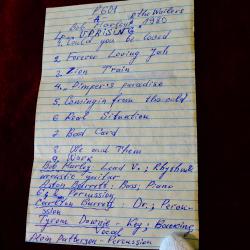 PGM
A
Bob Marley & The Wailers
Lp - UPRISING 1980
1. Could you be loved
2. Forever Loving Jah
3. Zion Train
4. Pimper's paradise
5. Comingin from the cold
6. Real Situation
7. Bad Card
8. We and Them
9. Work
Bob Marley - Lead V.; Rhythmik
acoustic guitar
Aston Barrett: Bass, Piano
guit. Percussion
Carlton Barrett - Dr.; Percu-
ssion
Tyrone Downie - Key; Backing
Vocal
Alvin Patterson - Percussion